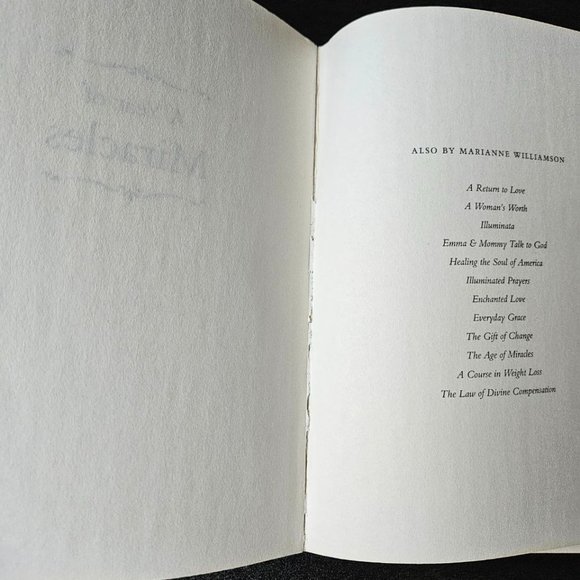 A Year of
Miracles
ALSO BY MARIANNE WILLIAMSON
A Return to Love
A Woman's Worth
Illuminata
Emma & Mommy Talk to God
Healing the Soul of America
Illuminated Prayers
Enchanted Love
Everyday Grace
The Gift of Change
The Age of Miracles
A Course in Weight Loss
The Law of Divine Compensation